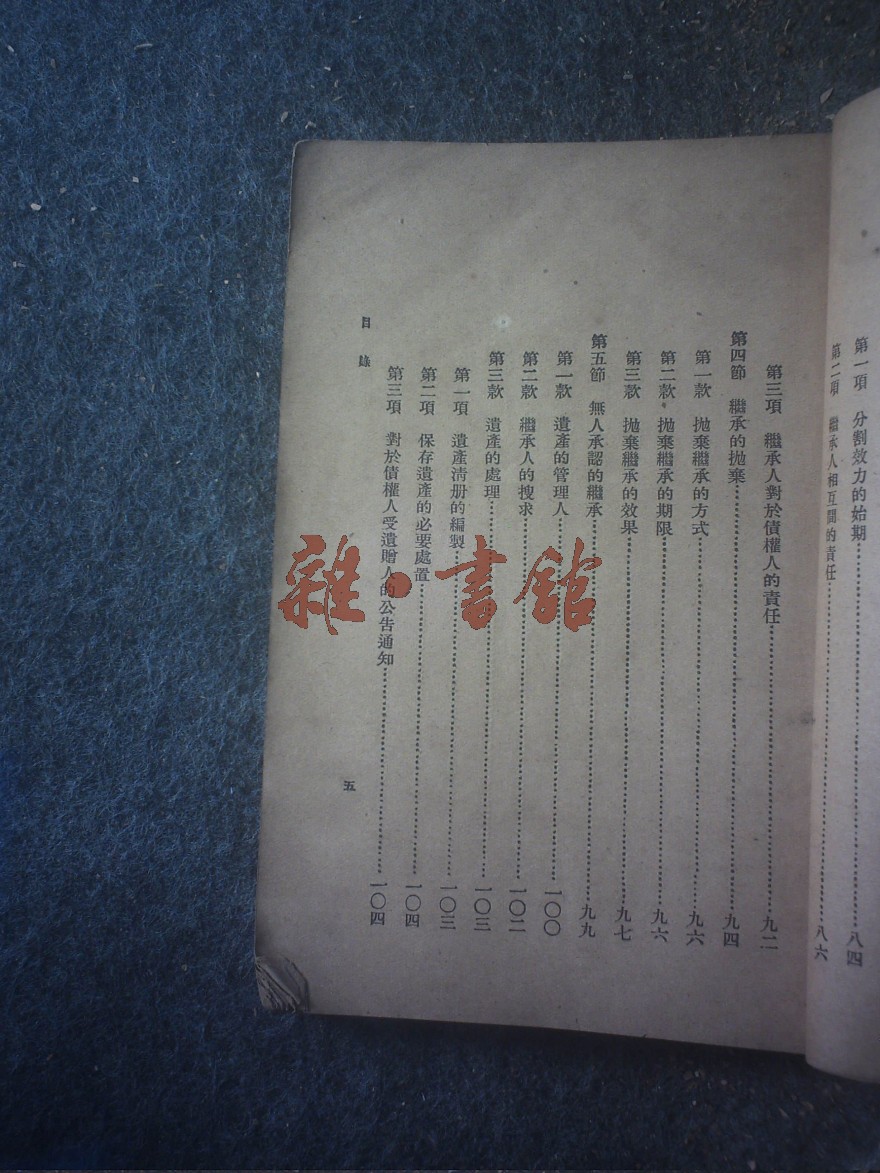 第一項　分割效力的始期……八四
第二項　繼承人相互間的責任……八六
第三項　繼承人對於債權人的責任……九二
第四節　繼承的拋棄……九四
第一款　拋棄繼承的方式……九六
第二款　拋棄繼承的期限……九六
第三款　拋棄繼承的效果……九七
第五節　無人承認的繼承……九九
第一款　遺產的管理人……一〇〇
第二款　繼承人的搜求……一〇二
第三款　遺產的處理……一〇三
第一項　遺產清册的編製……一〇三
第二項　保存遺產的必要處置……一〇四
第三項　對於債權人受遺贈人的公告通知……一〇四
目錄
五
雜·書館